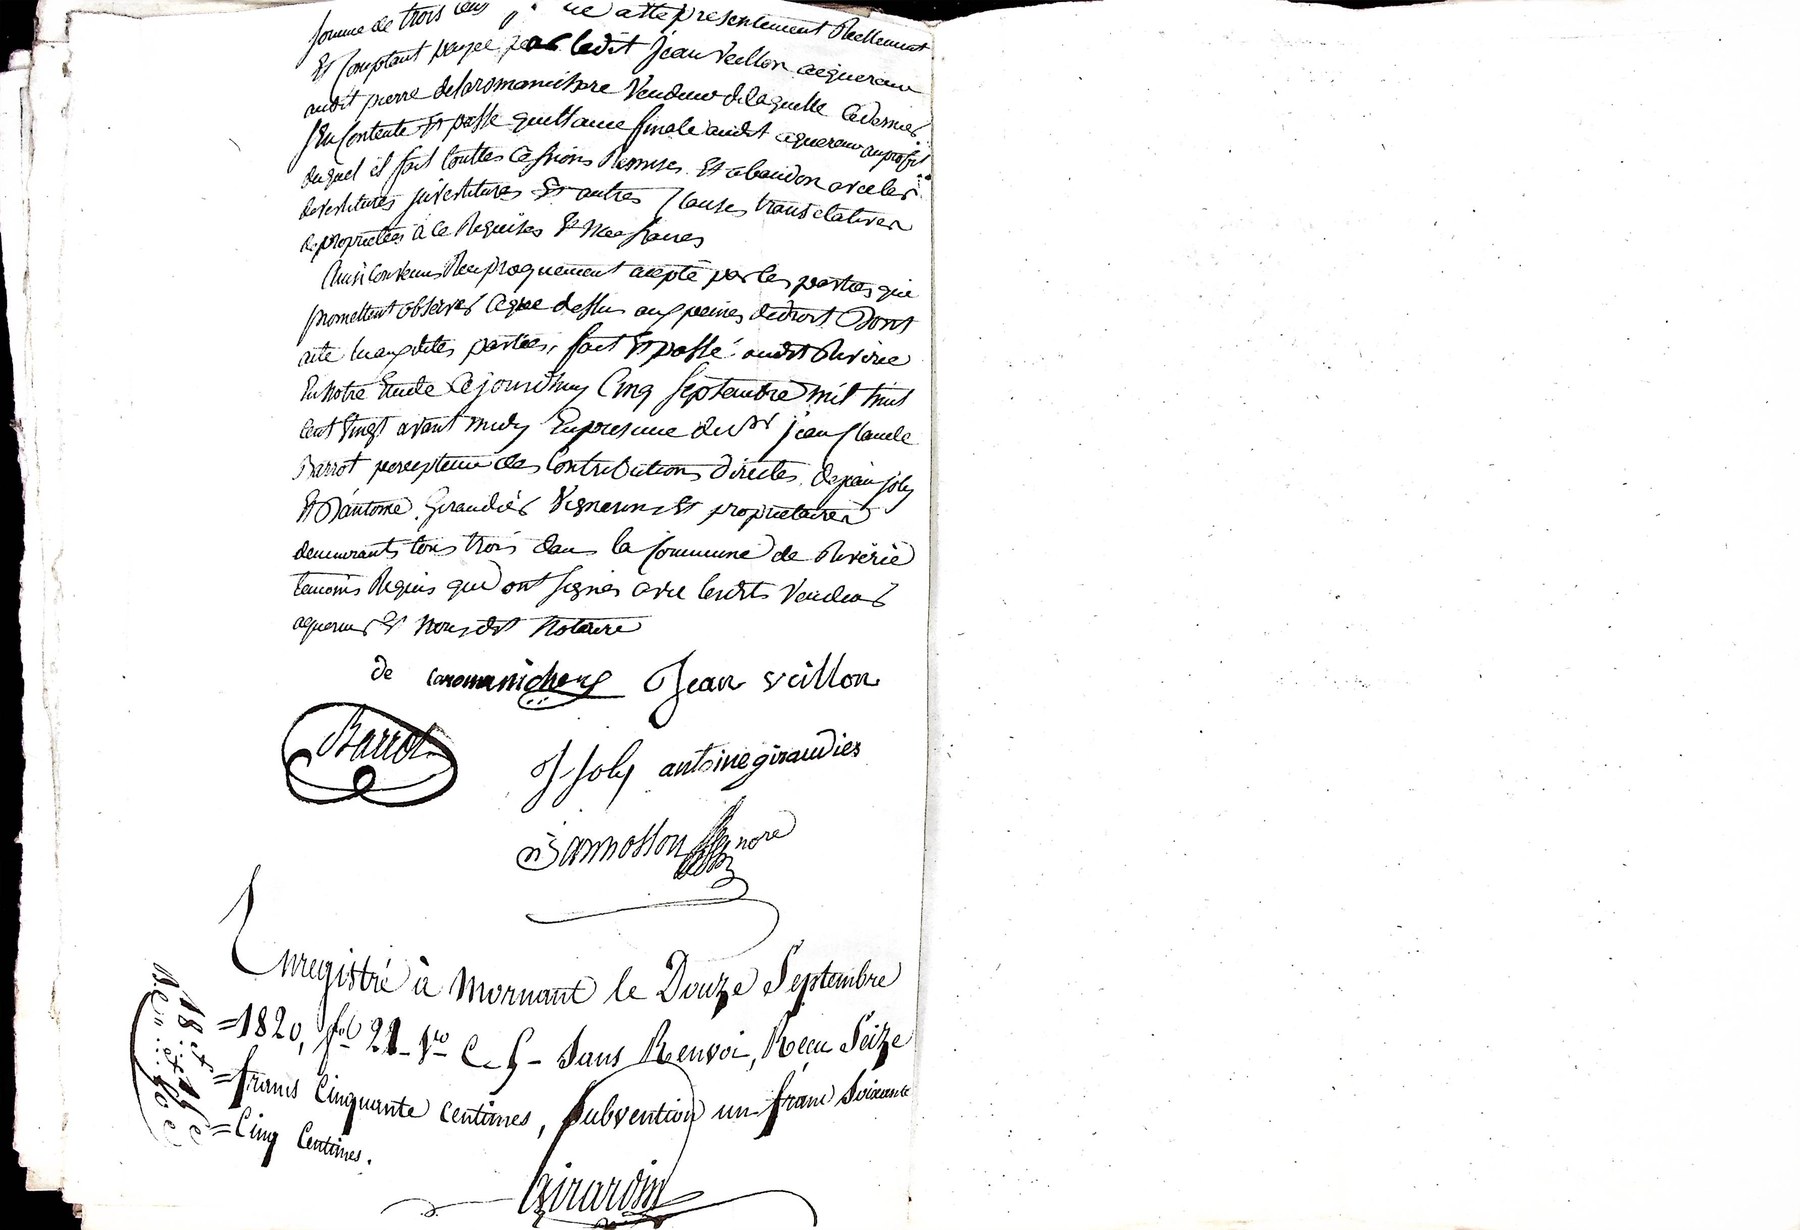 somme de trois cens
Et Comptant payée par ledit Jean Veillon acquereur
audit pierre delaromanichere Vendeur de laquelle ce dernier
sen Contente Et passe quittance finale audit aquereur au profit
duquel il fait touttes Cessions Remises Et abandon avec les
devettitures jnvettitures Et autres Clauses translatives
de proprietées à ce Requises & necessaires
Ainsi Convenus Reciproquement acepté par les parties qui
promettent observer ce que dessus aux peines de droit Dont
acte auxdites parties, fait Et passé audit Riverie
En notre Etude Cejourdhuy Cinq Septembre mil huit
Cent Vingt avant midy En presence du Sr jean Claude
Barrot percepteur des Contributions directes, de jean joly
Et D'antoine Giraudier Vignerons Et proprietaires
demeurants tous trois dans la Commune de Riverie
temoins Requis qui ont signés avec lesdits Vendeur
aquereur Et nous dit Notaire
de laromanichere Jean veillon
Barrot
J Joly antoine giraudier
nre
Enregistré à Mornant le Douze Septembre
=1820, fol 21 Vo C. 5 - Sans Renvoi, Reçu Seize
=francs Cinquante centimes, Subvention un franc Soixante
=Cinq Centimes.
Girardin